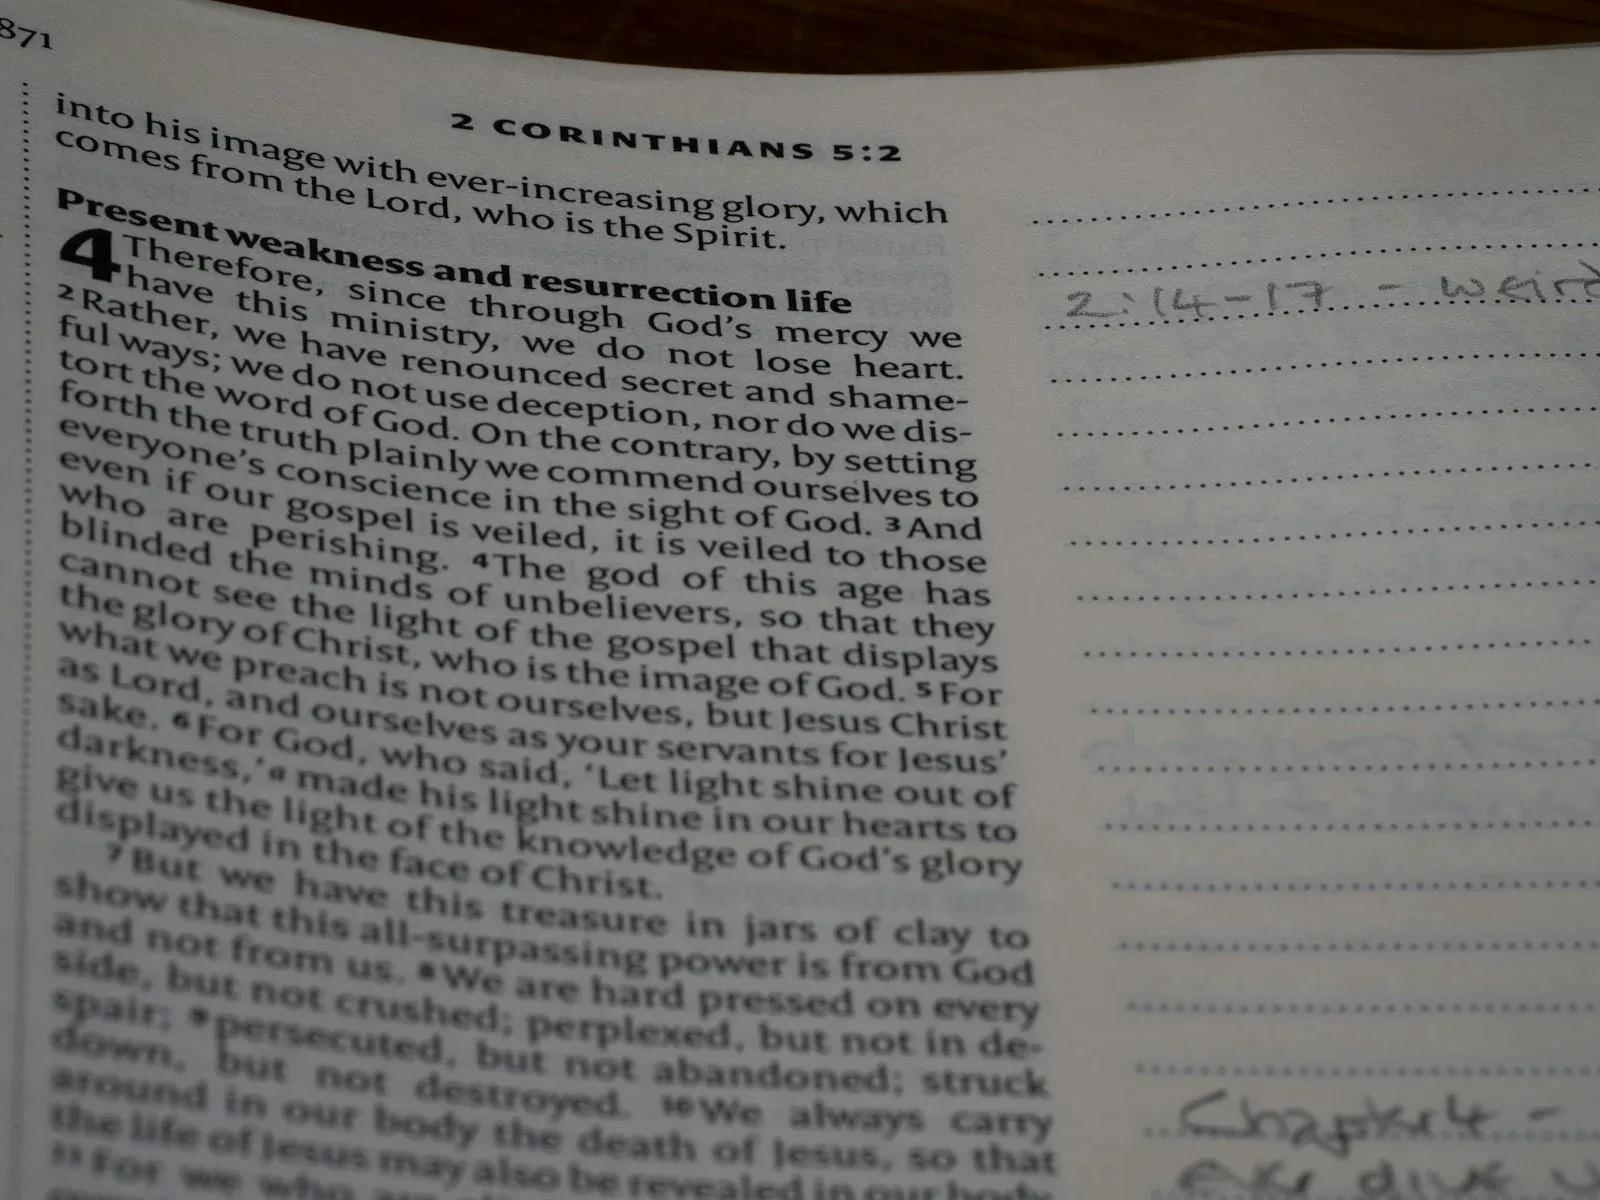 871
2 CORINTHIANS 5:2
into his image with ever-increasing glory, which
comes from the Lord, who is the Spirit.
Present weakness and resurrection life
4 Therefore, since through God's mercy we
have this ministry, we do not lose heart.
2 Rather, we have renounced secret and shame-
ful ways; we do not use deception, nor do we dis-
tort the word of God. On the contrary, by setting
forth the truth plainly we commend ourselves to
everyone's conscience in the sight of God. 3 And
even if our gospel is veiled, it is veiled to those
who are perishing. 4 The god of this age has
blinded the minds of unbelievers, so that they
cannot see the light of the gospel that displays
the glory of Christ, who is the image of God. 5 For
what we preach is not ourselves, but Jesus Christ
as Lord, and ourselves as your servants for Jesus'
sake. 6 For God, who said, 'Let light shine out of
darkness,' a made his light shine in our hearts to
give us the light of the knowledge of God's glory
displayed in the face of Christ.
7 But we have this treasure in jars of clay to
show that this all-surpassing power is from God
and not from us. 8 We are hard pressed on every
side, but not crushed; perplexed, but not in de-
spair; 9 persecuted, but not abandoned; struck
down, but not destroyed. 10 We always carry
around in our body the death of Jesus, so that
the life of Jesus may also be revealed in our body.
11 For we who
2:14-17 - weird
Chapter 4 -